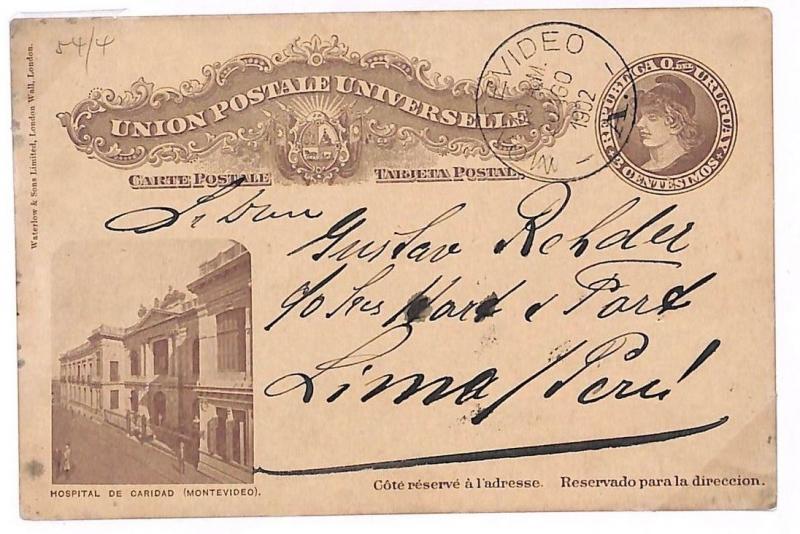 54/4
Waterlow & Sons Limited, London Wall, London.
UNION POSTALE UNIVERSELLE
CARTE POSTALE TARJETA POSTAL
MONTEVIDEO
1902
A.
REPUBLICA O. DEL URUGUAY
CENTESIMOS
Gustav Rehder
Lima/Perú
HOSPITAL DE CARIDAD (MONTEVIDEO).
Côté réservé à l'adresse. Reservado para la direccion.